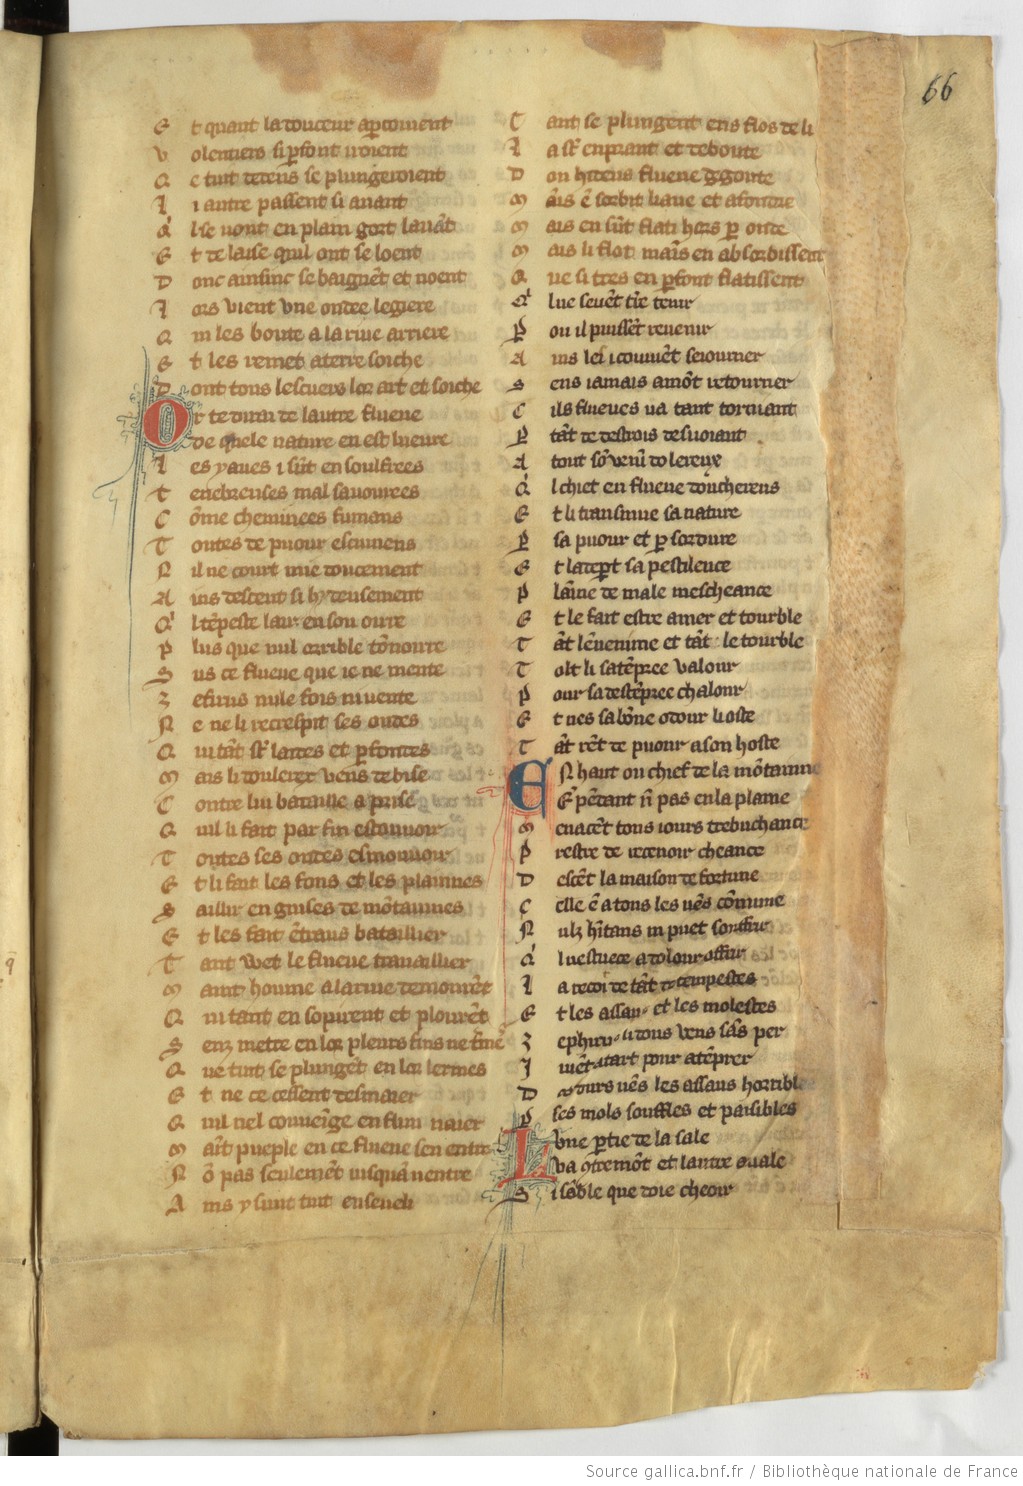 66
E t quant la douceur apcoiuent
V olentiers si pfont iroient
Q e tuit dedens se plungeroient
L i autre passent si auant
Q̃ l se uont en plain gort lauãt
E t de laise quil ont se loent
D onc ainsinc se baignẽt et noent
L ors vient vne ondee legiere
Q ui les boute a la riue arriere
E t les remet a terre soiche
D ont tous les cuers lor art et soiche
O r te dirai de lautre flueue
De quele nature en est lueure
L es yaues i sũt ensoulfrees
T enebreuses mal sauourees
C õme cheminees fumans
T outes de puour escumens
N il ne court mie doucement
A ins descent si hydeusement
Q̃ l tẽpeste lair en son oirre
P lus que nul orrible tõnoirre
S us ce flueue que ie ne mente
Z efirus nule fois ni uente
N e ne li recrespit ses ondes
Q ui tãt st̃ laides et pfondes
M ais li doulerex vens de bise
C ontre lui bataille a prise
Q uil li fait par fin estouuoir
T outes ses ondes esmouuoir
E t li fait les fons et les plainnes
S aillir en guises de mõtainnes
E t les fait ẽtraus bataillier
T ant wet le flueue trauaillier
M aint homme a la riue demourẽt
Q ui tant en sopirent et plourẽt
S enz metre en lor pleurs fins ne finẽ
Q ue tuit se plungẽt en lor lermes
E t ne ce cessent desmaier
Q uil nel conueigne en flun naier
M aĩt pueple en ce flueue sen entre
N õ pas seulemẽt iusquau uentre
A ins y sunt tuit enseueli
T ant se plungent ens flos de li
L a st̃ enpraint et deboute
D ou hideus flueue degoute
M ais ẽ sorbit liaue et afondre
M ais en sũt flati hors p onde
M ais li flot maĩs en absorbissent
Q ue si tres en pfont flatissent
Q̃ l ne seuẽt tre tenir
P ou il puissẽt reuenir
A ins lei i couuẽt seiourner
S ens iamais amõt retourner
C ils flueues ua tant tornant
P tãt de destrois desuoiant
A tout sõ venĩ dolereux
Q̃ l chiet en flueue doucherens
E t li transmue sa nature
P sa puour et p sordure
E t la dept sa pestilence
P laĩne de male mescheance
E t le fait estre amer et tourble
T ãt lẽuenime et tãt le tourble
T olt li satẽpree valour
P our sa destẽpree chalour
E t nes sa bõne odour li oste
T ãt rẽt de puour a son hoste
E N haut ou chief de la mõtainne
Eñ pẽdant ñ pas en la plaine
M enacẽt tous iours trebuchance
P restre de receuoir cheance
D escẽt la maison de fortune
C elle ẽ a tons les uẽs cõmune
N ulz hĩtans ni puet souffrir
L i recoi de tãt de tempestes
E t les assaus et les molestes
Z ephirus
D ours uẽs les assaus horribles
P ses mols souffles et paisibles
L vne ptie de la sale
Va 9tremõt et lautre auale
S i sẽble que doie cheoir
Source gallica.bnf.fr / Bibliothèque nationale de France